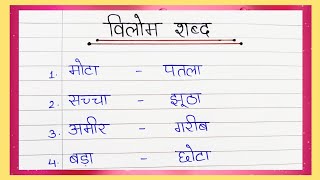 विलोम शब्द
1. मोटा - पतला
2. सच्चा - झूठा
3. अमीर - गरीब
4. बड़ा - छोटा